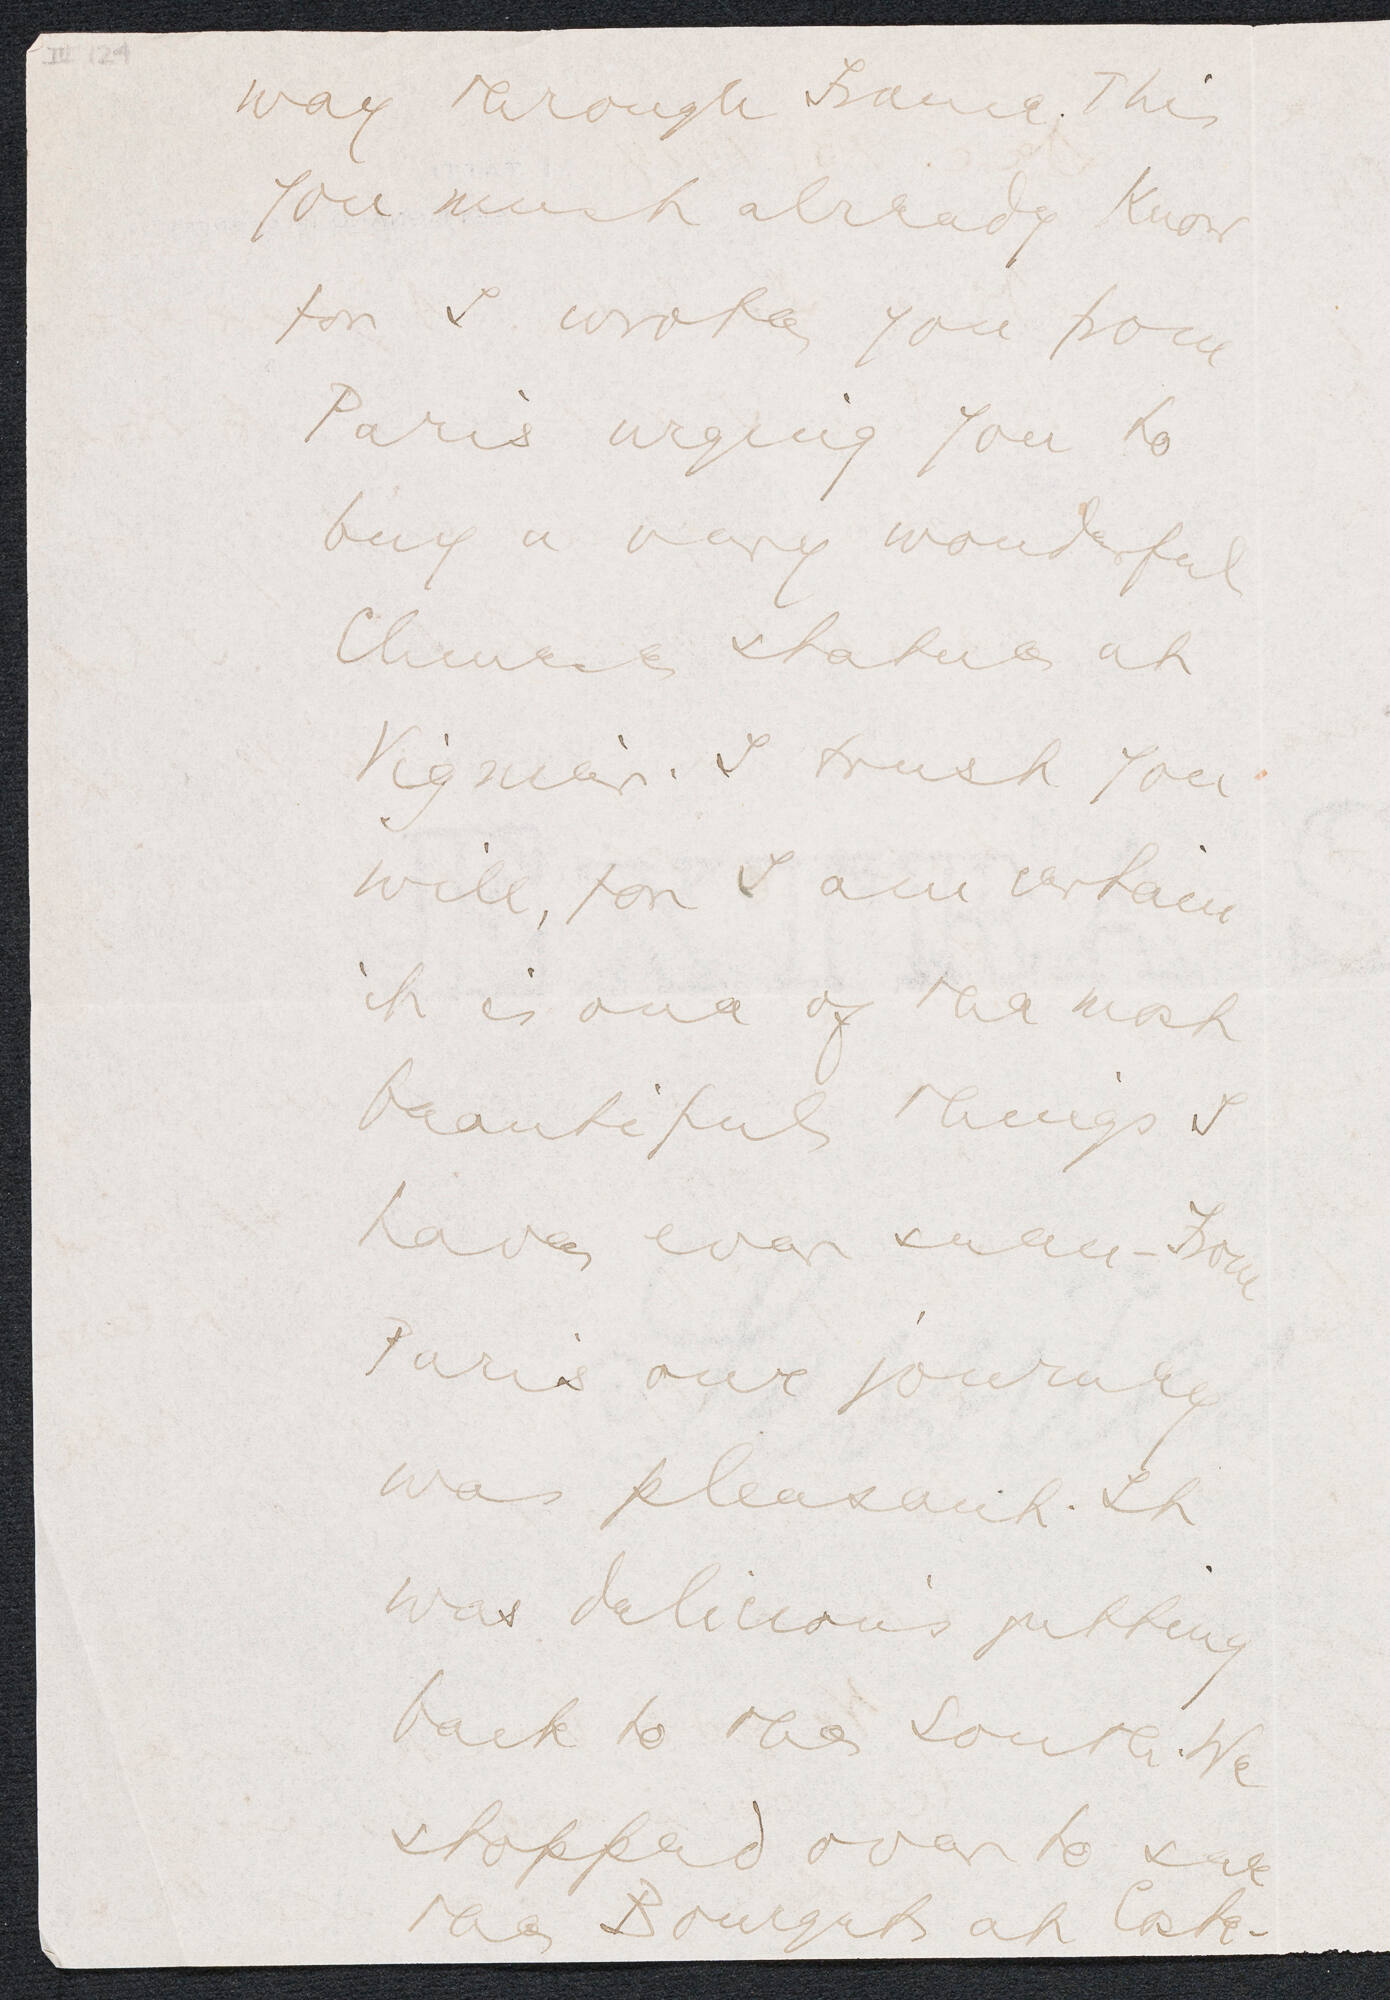 III 124
way through France. This
you must already know
for I wrote you from
Paris urging you to
buy a very wonderful
Chinese statue at
Vignier. I trust you
will, for I am certain
it is one of the most
beautiful things I
have ever seen – From
Paris our journey
was pleasant. It
was delicious getting
back to the South. We
stopped over to see
the Bourgets at Coste-